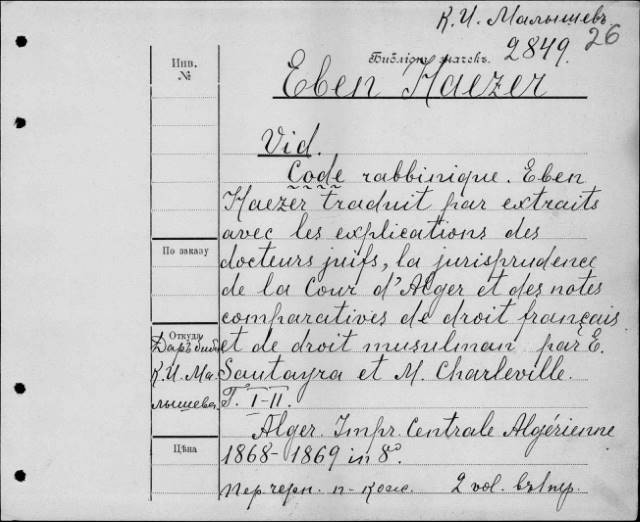 К. И. Малышевъ
26
Библіотечн. значекъ.
2849.
Инв.
№
Eben Haezer
Vid.
Code rabbinique. Eben
Haezer traduit par extraits
avec les explications des
docteurs juifs, la jurisprudence
de la Cour d'Alger et des notes
comparatives de droit français
et de droit musulman par E.
Sautayra et M. Charleville.
T. I-II.
Alger. Impr. Centrale Algérienne
1868-1869 in 8º.
пер черн. п-кож. 2 vol. въ 1 пер.
По заказу
Откуда
Даръ библ
К. И. Ма-
лышева.
Цѣна